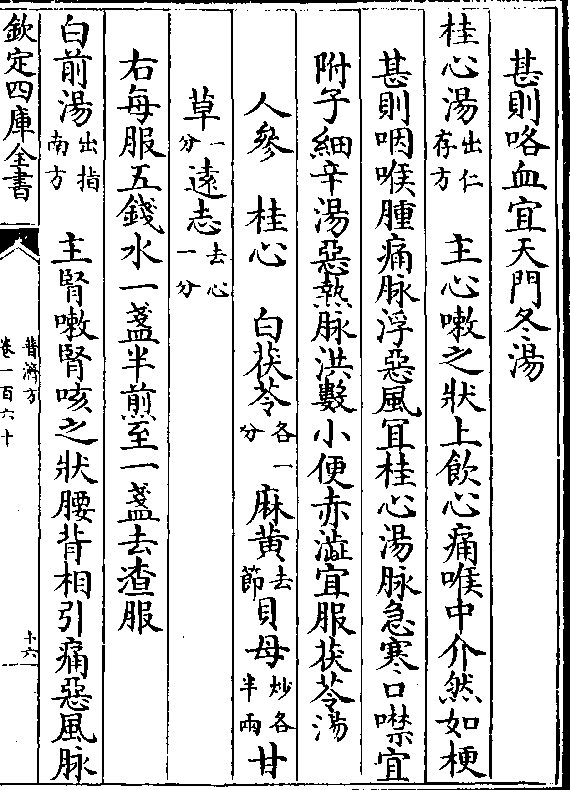 甚則咯血宜天門冬湯
桂心湯出仁存方 主心嗽之狀上飲心痛喉中介然如梗
甚則咽喉腫痛脉浮惡風冝桂心湯脉急寒口噤宜
附子細辛湯惡熱脉洪數小便赤澁宜服茯苓湯
人參 桂心 白茯苓各一分 麻黄去節 貝母炒各半兩 甘
草一分 遠志去心一分
右每服五錢水一盞半煎至一盞去渣服
白前湯出指南方 主腎嗽腎咳之狀腰背相引痛惡風脉
欽定四庫全書
普濟方
卷一百六十
十六